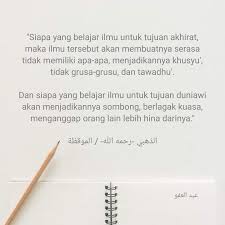 "Siapa yang belajar ilmu untuk tujuan akhirat,
maka ilmu tersebut akan membuatnya serasa
tidak memiliki apa-apa, menjadikannya khusyu',
tidak grusa-grusu, dan tawadhu'.
Dan siapa yang belajar ilmu untuk tujuan duniawi
akan menjadikannya sombong, berlagak kuasa,
menganggap orang lain lebih hina darinya."
الذهبي -رحمه الله- / الموقظة
عبد العفو